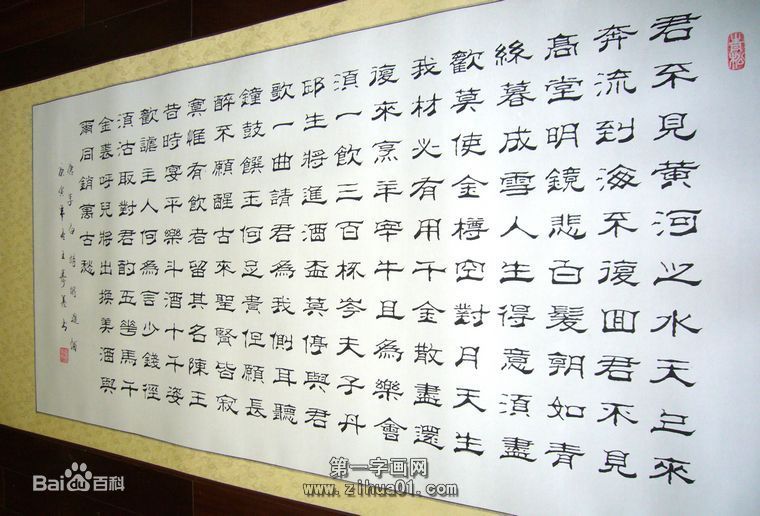 君不見黃河之水天上來
奔流到海不復回君不見
高堂明鏡悲白髮朝如青
絲暮成雪人生得意須盡
歡莫使金樽空對月天生
我材必有用千金散盡還
復來烹羊宰牛且為樂會
須一飲三百杯岑夫子丹
邱生將進酒盃莫停與君
歌一曲請君為我側耳聽
鐘鼓饌玉何足貴但願長
醉不願醒古來聖賢皆寂
寞惟有飲者留其名陳王
昔時宴平樂斗酒十千姿
歡謔主人何為言少錢徑
須沽取對君酌五華馬千
金裘呼兒將出換美酒與
爾同銷萬古愁
唐李白詩將進酒
Bai du 百科
第一字画网
www.zihua01.com